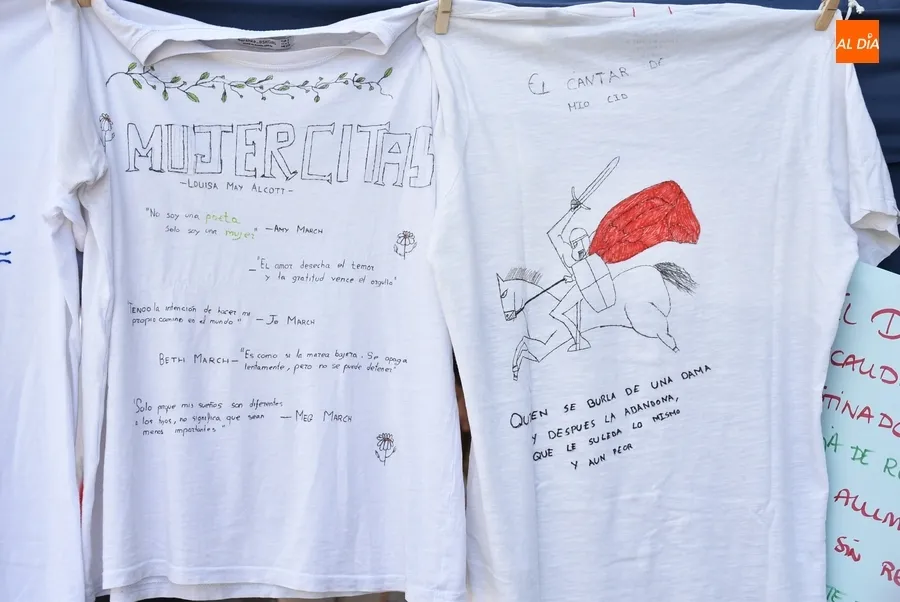 AL DÍA
MUJERCITAS
-LOUISA MAY ALCOTT-
"No soy una poeta
Solo soy una mujer" -AMY MARCH
-"EL amor desecha el temor
y la gratitud vence el orgullo"
"TENGO la intención de hacer mi
propio camino en el mundo" - JO MARCH
BETH MARCH-"Es como si la marea bajara. Se apaga
lentamente, pero no se puede detener"
"Solo porque mis sueños son diferentes
a los tuyos, no significa que sean - MEG MARCH
menos importantes"
EL CANTAR DE
MIO CID
QUIEN SE BURLA DE UNA DAMA
Y DESPUES LA ABANDONA,
QUE LE SUCEDA LO MISMO
Y AUN PEOR
L D
CAUD
TINADO
A DE R
ALUM
SIN RE
TE